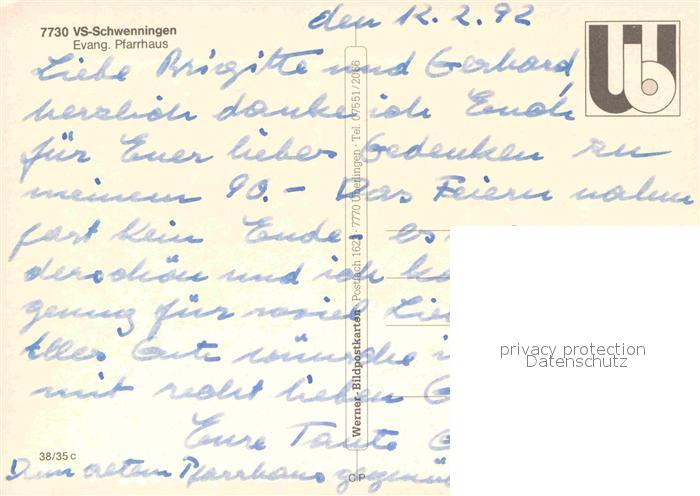 7730 VS-Schwenningen
Evang. Pfarrhaus
den 12.2.92
Liebe Brigitte und Gerhard
herzlich danke ich Euch
für Euer liebes Gedenken zu
meinem 90.- Das Feiern nahm
fast kein Ende, es
derschön und ich
genug für soviel
Alles Gute wünsche
mit recht lieben G
Eure Tante G
38/35 c
Dem altem Pfarrhaus gegenü
C P
Werner-Bildpostkarten · Postfach 1623 · 7770 Überlingen · Tel. 07551/2066
privacy protection
Datenschutz